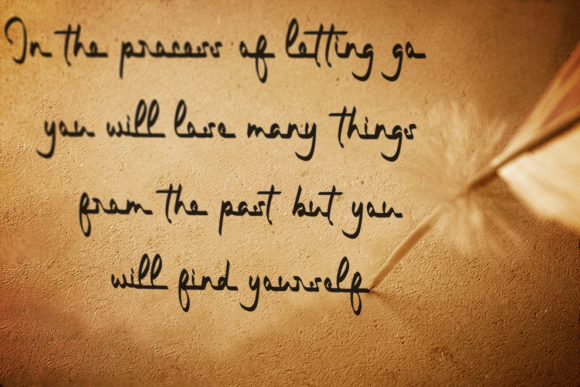 In the process of letting go
you will lose many things
from the past but you
will find yourself